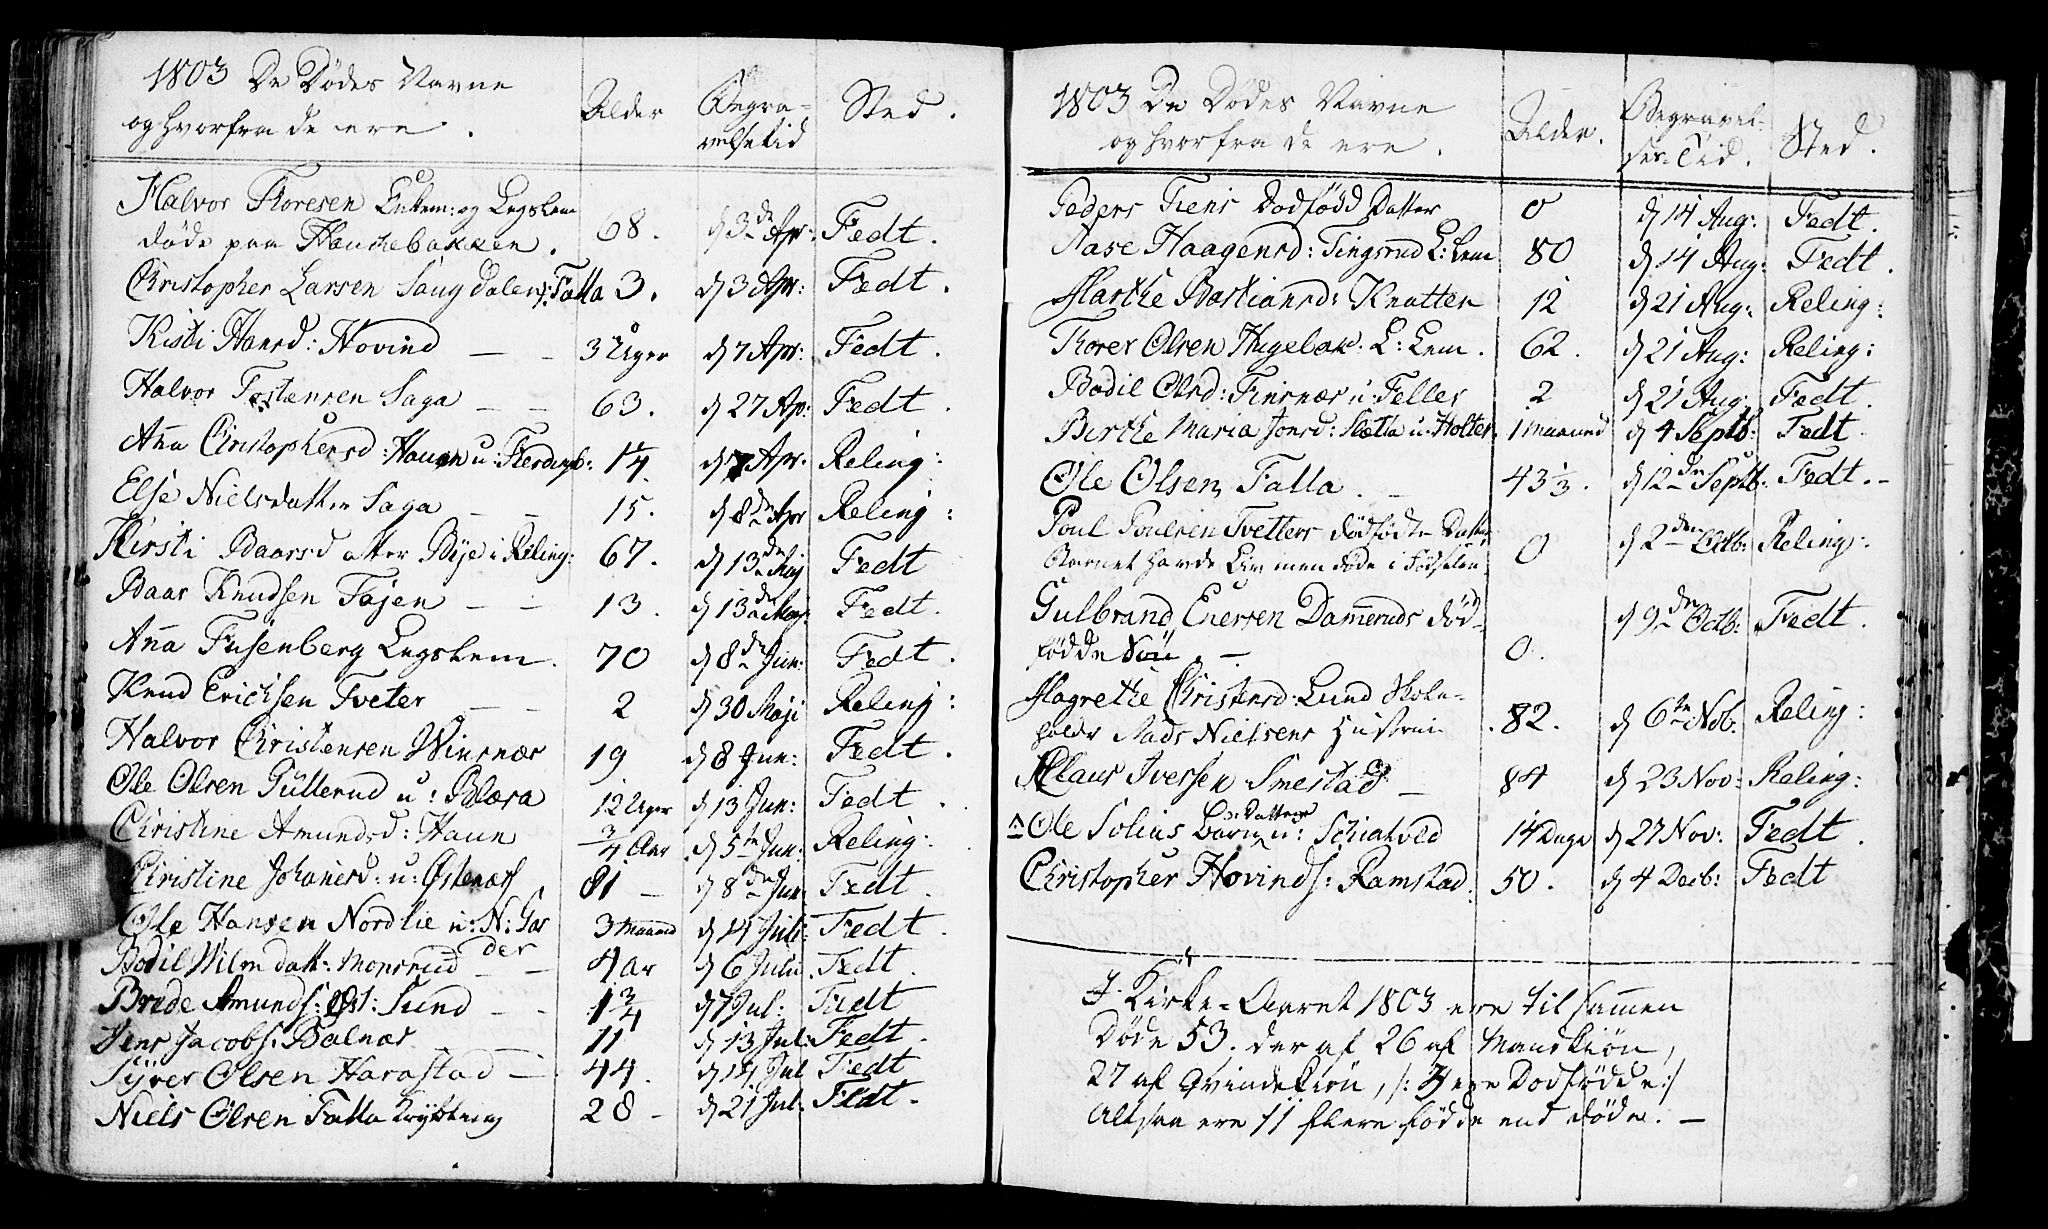 1803 De Dödes Navne
og hvorfra de ere.
Alder
Begra-
velsetid
Sted.
Halvor Thoresen Enkem: og Legslem
döde paa Hauchebakken.
68.
d 3de Apr:
Fedt.
Christopher Larsen Saugdalen /: Tatla
3.
d 3 Apr:
Fedt.
Kisti Hansd: Hovind
3 Uger
d 7 Apr:
Fedt.
Halvor Tostensen Saga
63.
d 27 Ap:
Fedt.
Ana Christophersd: Hauen u:
14.
d 7 Apr.
Reling:
Else Nielsdatter Saga
15.
d 8de Apr
Reling:
Kirsti Baarsdatter Böje i Reling:
67.
d 13de Maj
Fedt
Baar Knudsen Töjen
13.
d 13de Maj
Fedt.
Ana Fusenberg Legslem.
70
d 8de Jun:
Fedt.
Knud Erichsen Tveter
2
d 30 Maji
Reling:
Halvor Christensen Winsnær
19
d 8 Jun:
Fedt.
Ole Olsen Gullerud u: Blæra
12 Uger
d 13 Jun:
Fedt.
Christine Amundsd: Haun
3/4 Aar
d 5te Jun:
Reling:
Christine Johanesd: u: Östenæss
81
d 8de Jun
Fedt.
Ole Hansen Nordlie u: N: Gar
der
3 Maaned
d 14 Juli:
Fedt.
Bodil Wilm datt: Monsrud
4 Ar
d 6 Julii
Fedt.
Brede Amunds: Öst: Sund
1 3/4
d 7 Jul:
Fedt
Jens Jacobs: Balnær
11
d 13 Jul:
Fedt.
Syver Olsen Harastad
44.
d 14 Jul
Fedt
Niels Olsen Tatla
28
d 21 Jul:
Fedt.
1803 De Dödes Navne
og hvorfra de ere.
Alder.
Begravel-
ses-Tid.
Sted.
Peders Tiens Dödfödd Datter
0
d 14 Aug:
Fedt.
Aase Haagensd: Tingsrud L: Lem
80
d 14 Aug:
Fedt.
Marthe Bastiansd: Knatten
12
d 21 Aug:
Reling:
Thorer Olsen Hugelak: L: Lem.
62.
d 21 Aug:
Reling:
Bodil Olsd: Finsnær u: Feller
2
d 21 Aug:
Fedt.
Birthe Maria Jonsd: Slætta u: Holter.
1 Maaned
d 4 Septb:
Fedt
Ole Olsen Tatla.
43 1/3.
d 12de Septb:
Fedt.
Poul Poulsen Tvetters dödfödte Datter
Barnet havde Liv men döde i Födselen
0
d 2den Octb:
Reling:
Gulbrand Enersen Dameruds död-
födde Sön
0.
d 9de Octb:
Fedt.
Magrethe Christensd: Lund Skole-
holder Mads Nielsens Hustrue
82.
d 6te Nov:
Reling:
Claus Iversen Smestad
84
d 23 Nov:
Reling:
Ole Solius Barn Datter u: Schiatvld
14 Dage
d 27 Nov:
Fedt.
Christopher Hovinds: Ramstad.
50.
d 4 Decb:
Fedt
I Kirke-Aaret 1803 ere til samen
Döde 53. der af 26 af Mandkiön,
27 af Qvindekiön, /: 4 ere Dödfödde :/
Altsaa ere 11 flere födde end döde.